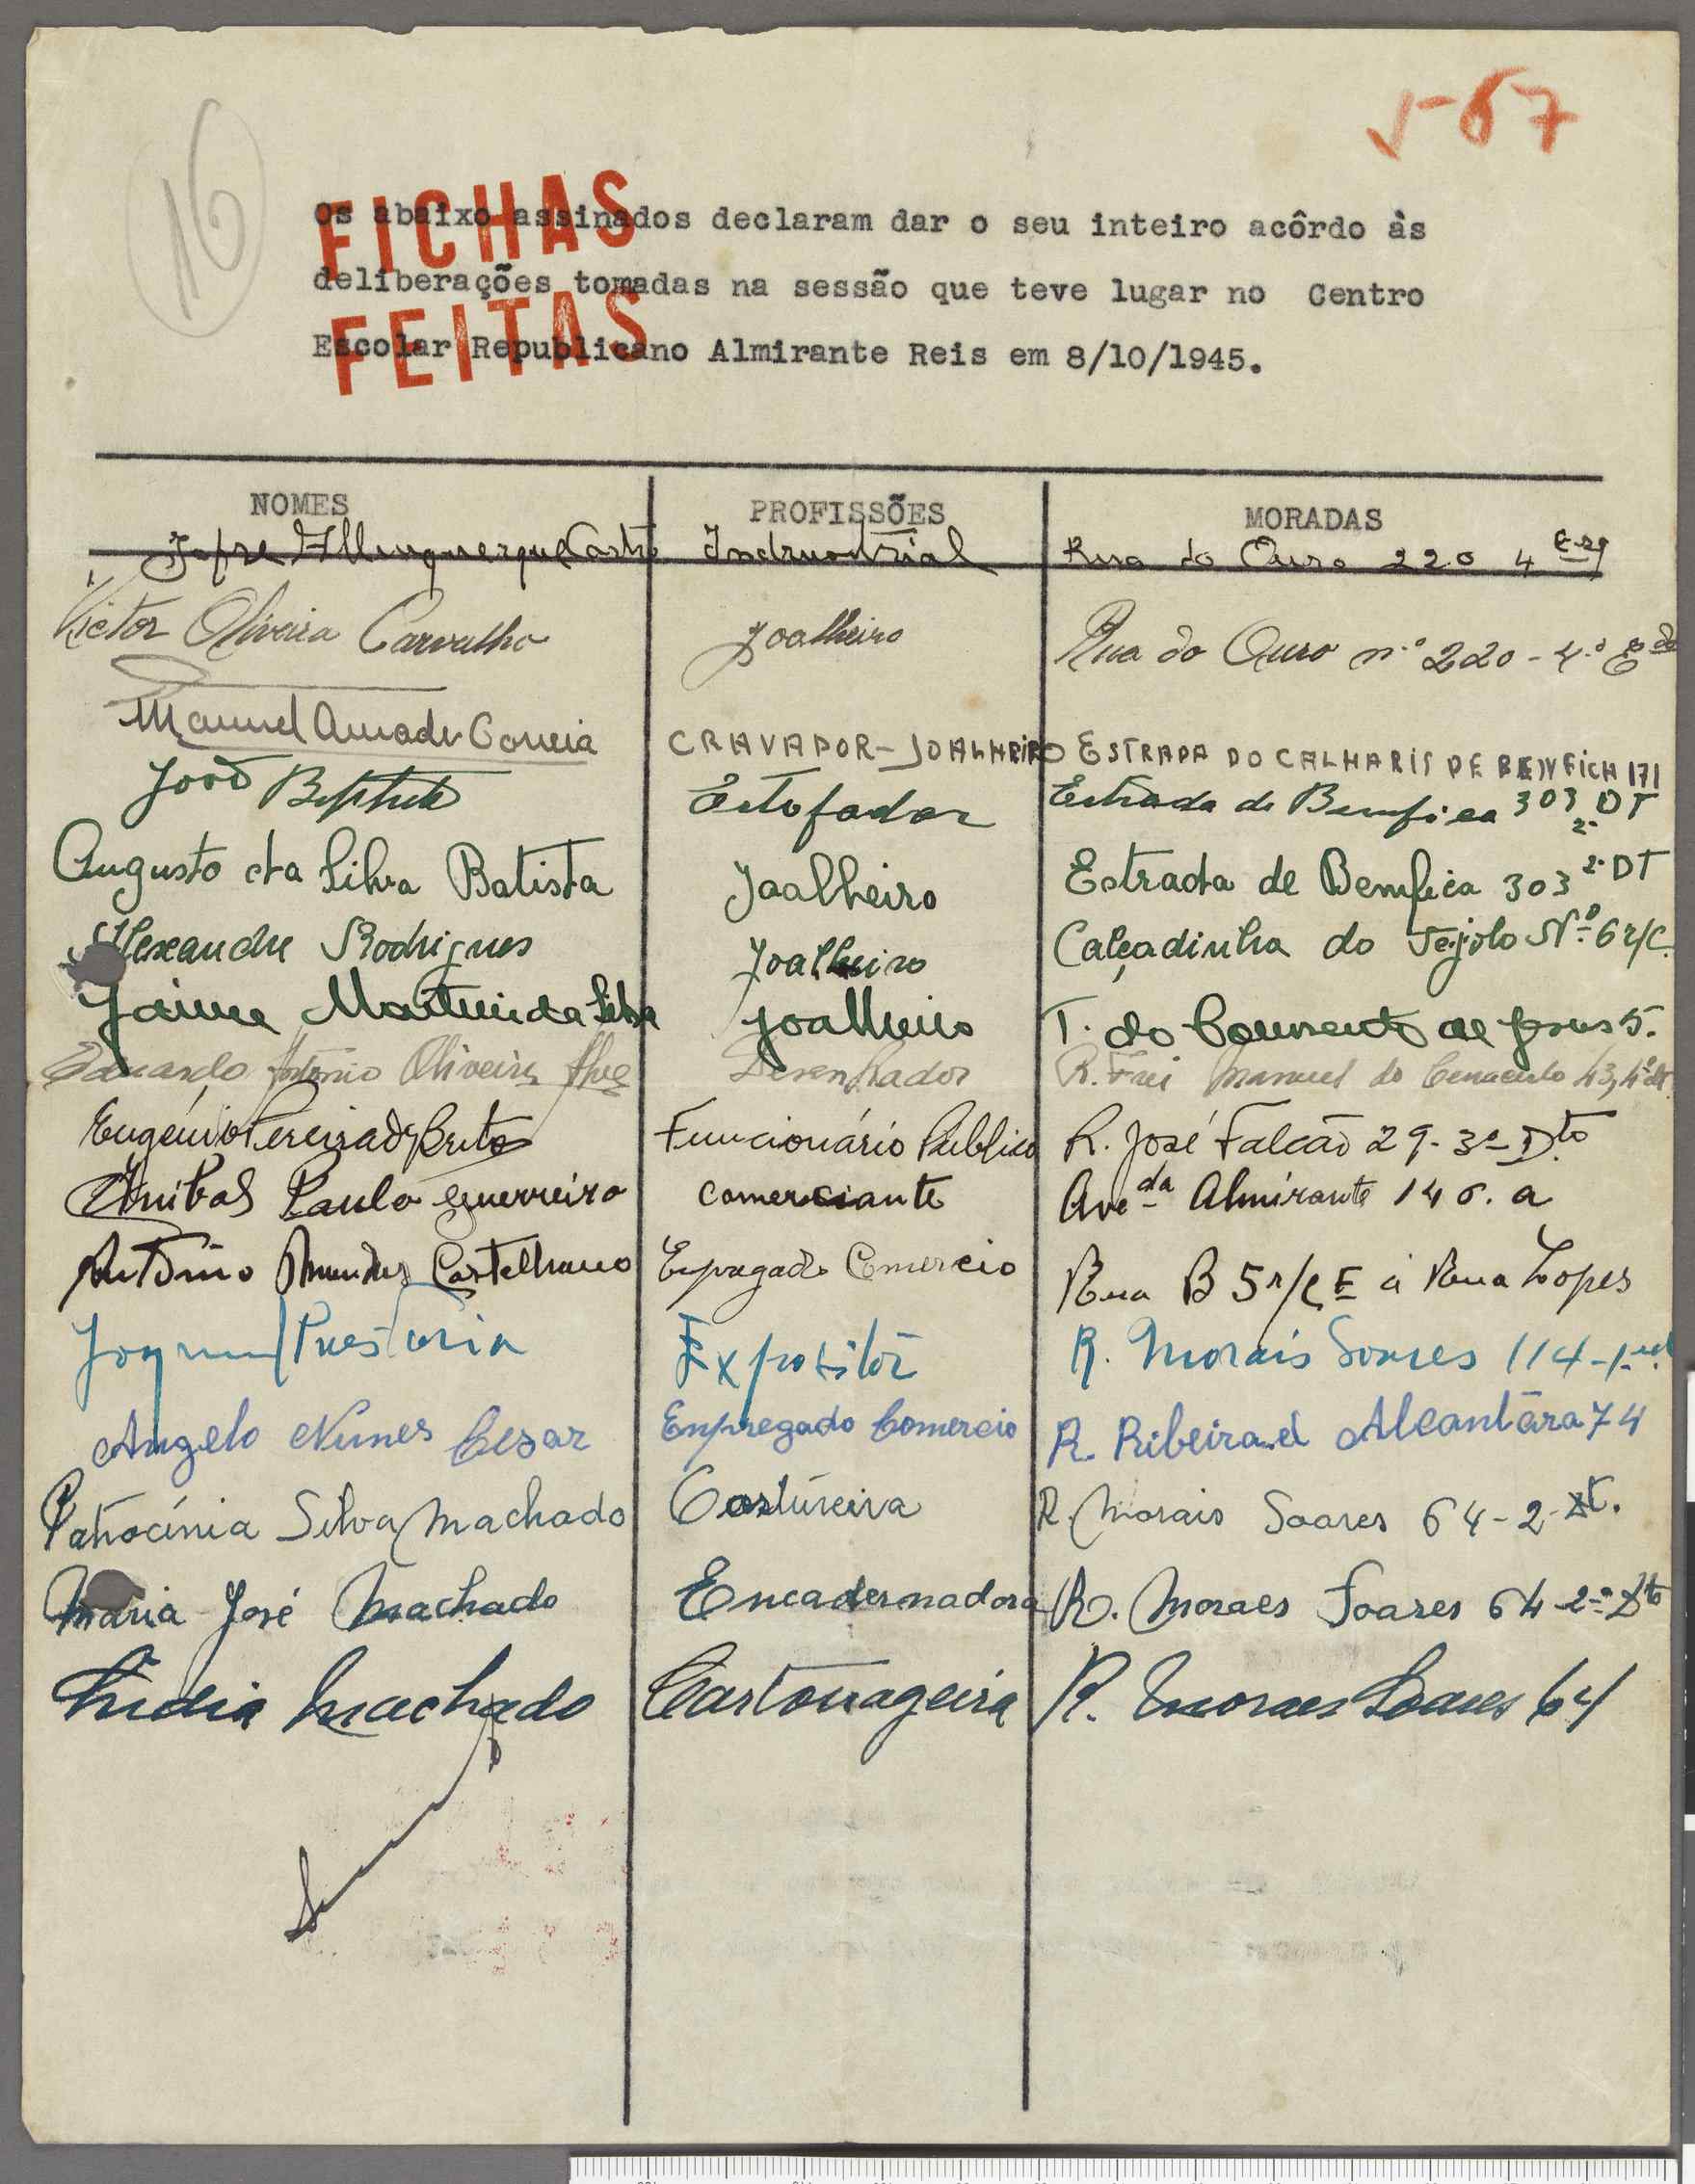 16
√-67
FICHAS
FEITAS
Os abaixo assinados declaram dar o seu inteiro acôrdo às
deliberações tomadas na sessão que teve lugar no Centro
Escolar Republicano Almirante Reis em 8/10/1945.
NOMES PROFISSÕES MORADAS
Jofre Albuquerque Castro Indrustrial Rua do Ouro 220 4 Esq
Victor Oliveira Carvalho Joalheiro Rua do Ouro n.º 220-4.º
Manuel Amado Correia CRAVADOR-JOALHEIRO ESTRADA DO CALHARIS DE BENFICA 171
João Baptista Estofador Estrada de Bemfica 303 2º DT
Augusto da Silva Batista Joalheiro Estrada de Bemfica 303 2º DT
Alexandre Rodrigues Joalheiro Calçadinha do Tejolo Nº 6 r/c.
Jaime Martins da Silva Joalheiro T. do Convento de Jesus 5.
Eduardo Antonio Oliveira Alves Desenhador R. Frei Manuel do Cenaculo 43, 4º dt.
Eugénio Pereira de Brito Funcionário Público R. José Falcão 29-3º Dto
Anibal Paulo Guerreiro Comerciante Aveda Almirante 146. a
António Mendes Castelhano Epregado Comercio Rua B 5 r/c E à Rua Lopes
Expositôr R. Morais Soares 114-1
Angelo Nunes Cesar Empregado Comercio R. Ribeira d Alcantâra 74
Patrocínia Silva Machado Costureira R. Morais Soares 64-2-Dt.
Maria José Machado Encadernadora R. Moraes Soares 64-2º Dto
Lidia Machado Cartonageira R. Moraes Soares 64